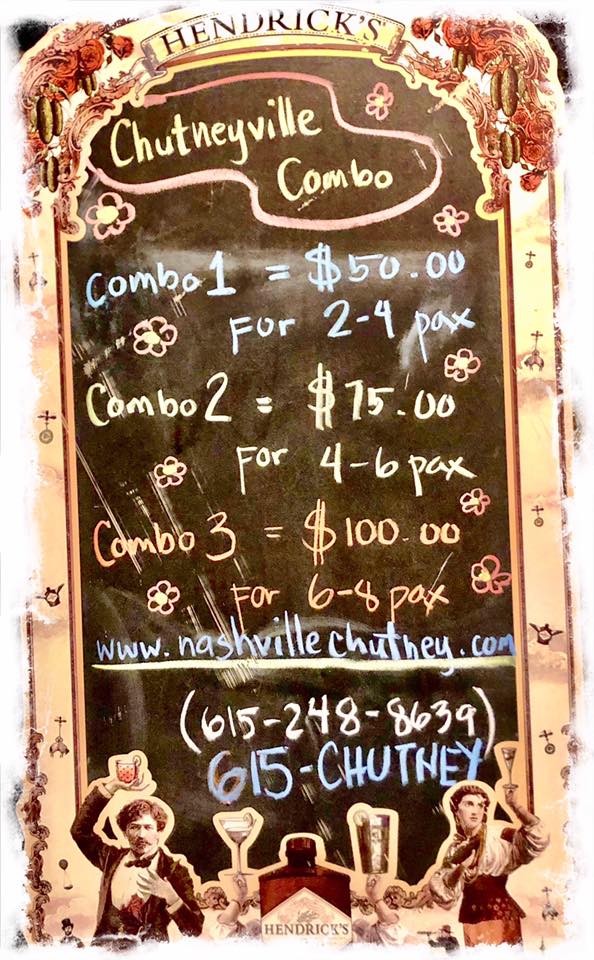 HENDRICK'S
Chutneyville
Combo
Combo 1 = $50.00
For 2-4 pax
Combo 2 = $75.00
For 4-6 pax
Combo 3 = $100.00
For 6-8 pax
www.nashvillechutney.com
(615-248-8639)
615-CHUTNEY
HENDRICK'S